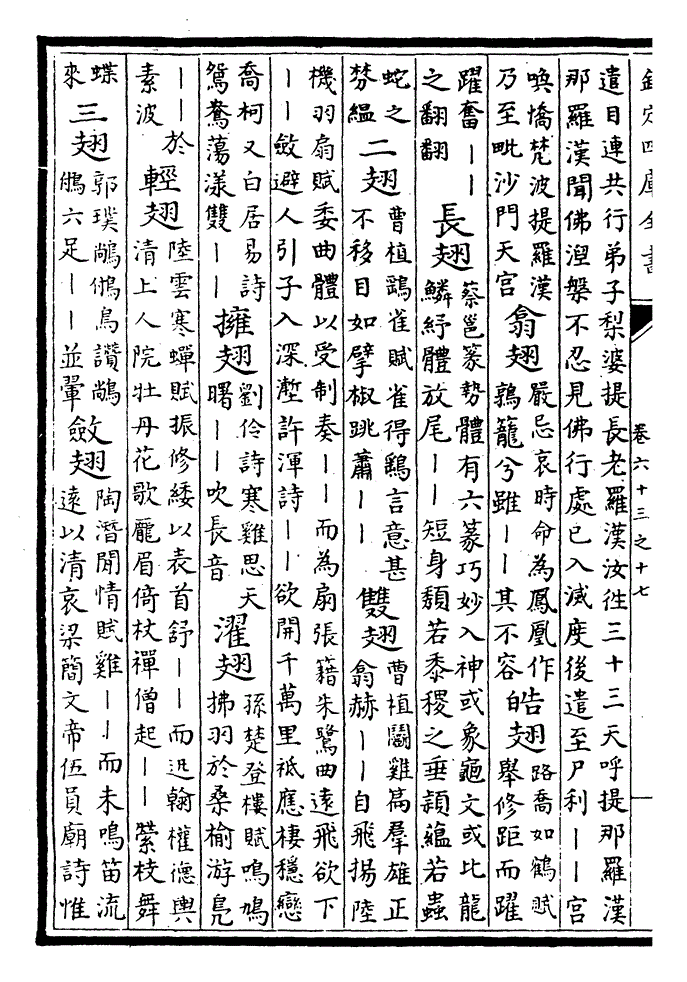 欽定四庫全書
卷六十三之十七
遣目連共行弟子梨婆提長老羅漢汝往三十三天呼提那羅漢
那羅漢聞佛涅槃不忍見佛行處已入滅度後遣至尸利——宮
喚憍梵波提羅漢
乃至毗沙門天宮
翕翅
嚴忌哀時命為鳳凰作
鶉籠兮雖——其不容
皓翅
路喬如鶴賦
舉修距而躍
躍奮——
之翻翻
長翅
蔡邕篆勢體有六篆巧妙入神或象龜文或比龍
鱗紓體放尾——短身頹若黍稷之垂穎蘊若蟲
蛇之
棼緼
二翅
曹植鷂雀賦雀得鷂言意甚
不移目如擘椒跳蕭——
雙翅
曹植鬭雞篇羣雄正
翕赫——自飛揚陸
機羽扇賦委曲體以受制奏——而為扇張籍朱鷺曲遠飛欲下
——斂避人引子入深塹許渾詩——欲開千萬里祗應棲穩戀
喬柯又白居易詩
鴛鴦蕩漾雙——
擁翅
劉伶詩寒雞思天
曙——吹長音
濯翅
孫楚登樓賦鳴鳩
拂羽於桑榆游鳧
——於
素波
輕翅
陸雲寒蟬賦振修緌以表首舒——而迅翰權德輿
清上人院牡丹花歌龐眉倚杖禪僧起——縈枝舞
蝶
來
三翅
郭璞鳥讚
六足——並翬
斂翅
陶潛閒情賦雞——而未鳴笛流
遠以清哀梁簡文帝伍員廟詩惟